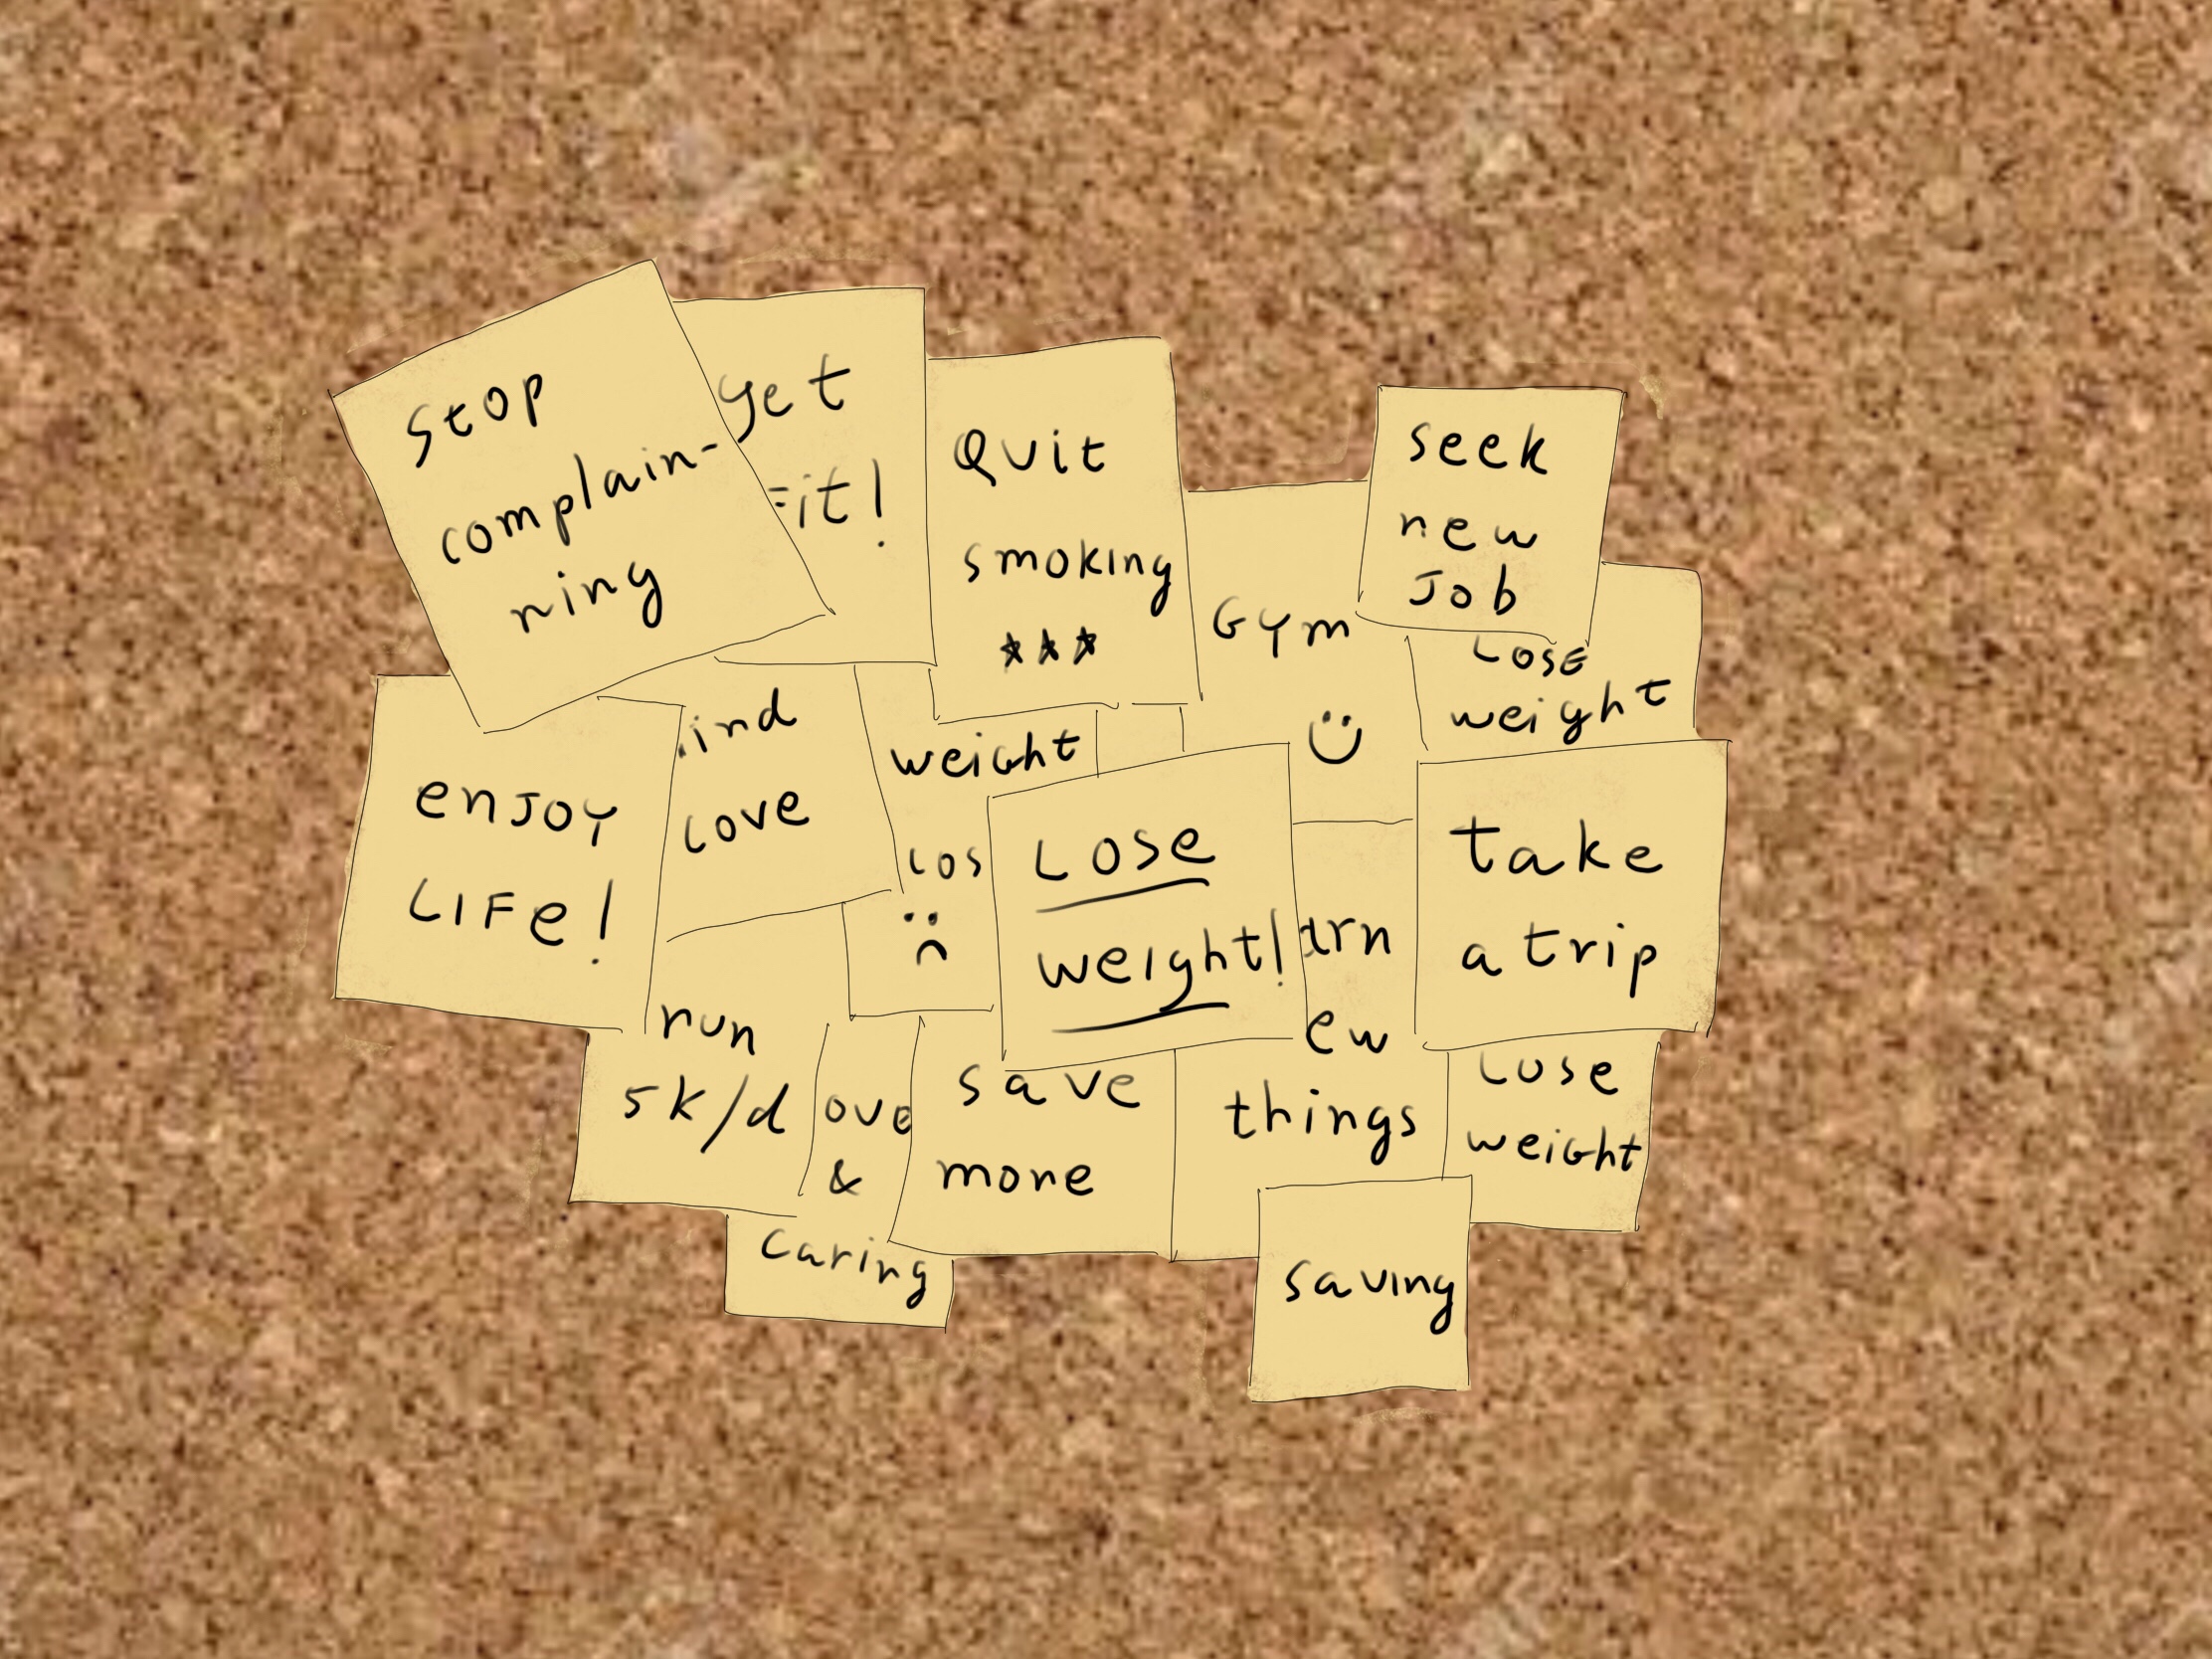 Stop
complain-
ning
get
Fit!
Quit
smoking
seek
new
Job
Gym
Lose
weight
enjoy
LIFe!
love
weight
los
Lose
weight!
take
a trip
run
5k/d
&
caring
save
more
things
Lose
weight
saving